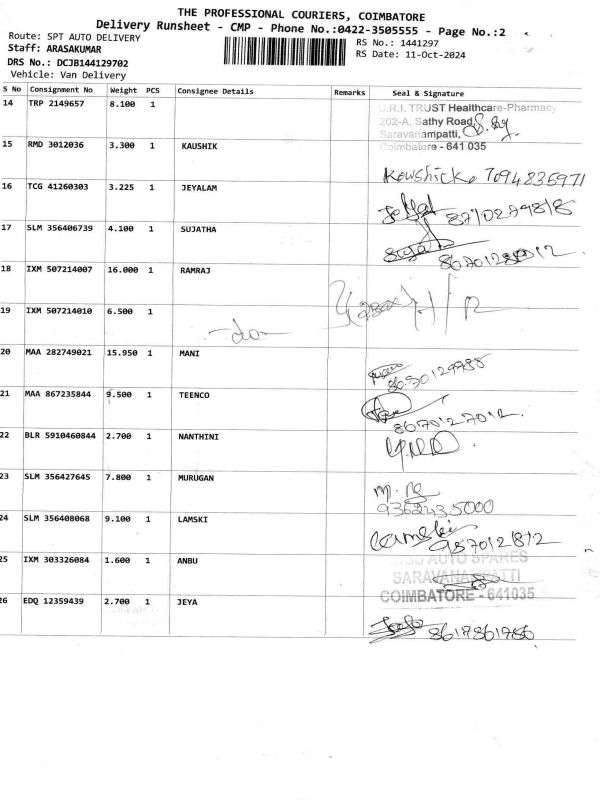 THE PROFESSIONAL COURIERS, COIMBATORE
Delivery Runsheet - CMP - Phone No.:0422-3505555 - Page No.:2
Route: SPT AUTO DELIVERY
RS No.: 1441297
Staff: ARASAKUMAR
RS Date: 11-Oct-2024
DRS No.: DCJB144129702
Vehicle: Van Delivery
S No Consignment No Weight PCS Consignee Details Remarks Seal & Signature
14 TRP 2149657 8.100 1
C.R.I. TRUST Healthcare-Pharmacy
202-A, Sathy Road,
Saravanampatti,
Coimbatore - 641 035
15 RMD 3012036 3.300 1 KAUSHIK
Kowshick 7094835971
16 TCG 41260303 3.225 1 JEYALAM
17 SLM 356406739 4.100 1 SUJATHA
18 IXM 507214007 16.000 1 RAMRAJ
19 IXM 507214010 6.500 1
-do-
20 MAA 282749021 15.950 1 MANI
21 MAA 867235844 9.500 1 TEENCO
8670127012
22 BLR 5910460844 2.700 1 NANTHINI
23 SLM 356427645 7.800 1 MURUGAN
9362435000
24 SLM 356408068 9.100 1 LAMSKI
25 IXM 303326084 1.600 1 ANBU
AUTO SPARES
SARAVANAMPATTI
COIMBATORE - 641035
26 EDQ 12359439 2.700 1 JEYA
8617861786